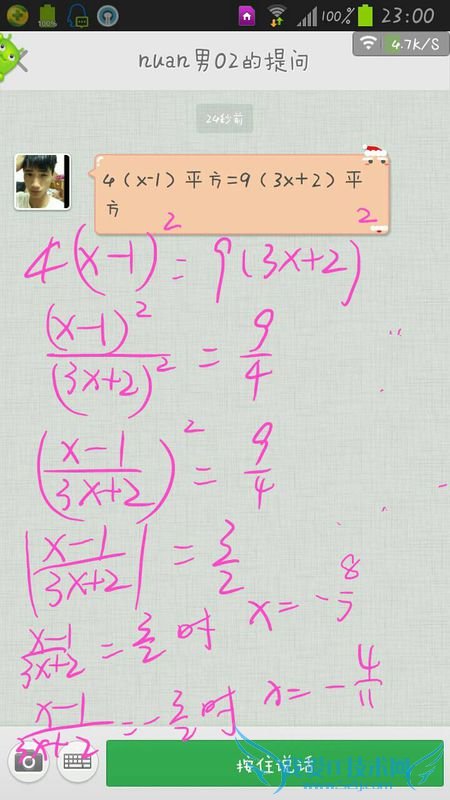 100%
100%
23:00
4.7K/S
nuan男02的提问
24秒前
4(x-1)平方=9(3x+2)平
方
4(x-1)² = 9(3x+2)²
(x-1)²/(3x+2)² = 9/4
((x-1)/(3x+2))² = 9/4
|(x-1)/(3x+2)| = 3/2
(x-1)/(3x+2) = 3/2 时 x = -8/7
(x-1)/(3x+2) = -3/2 时 x = -4/11
按住说话